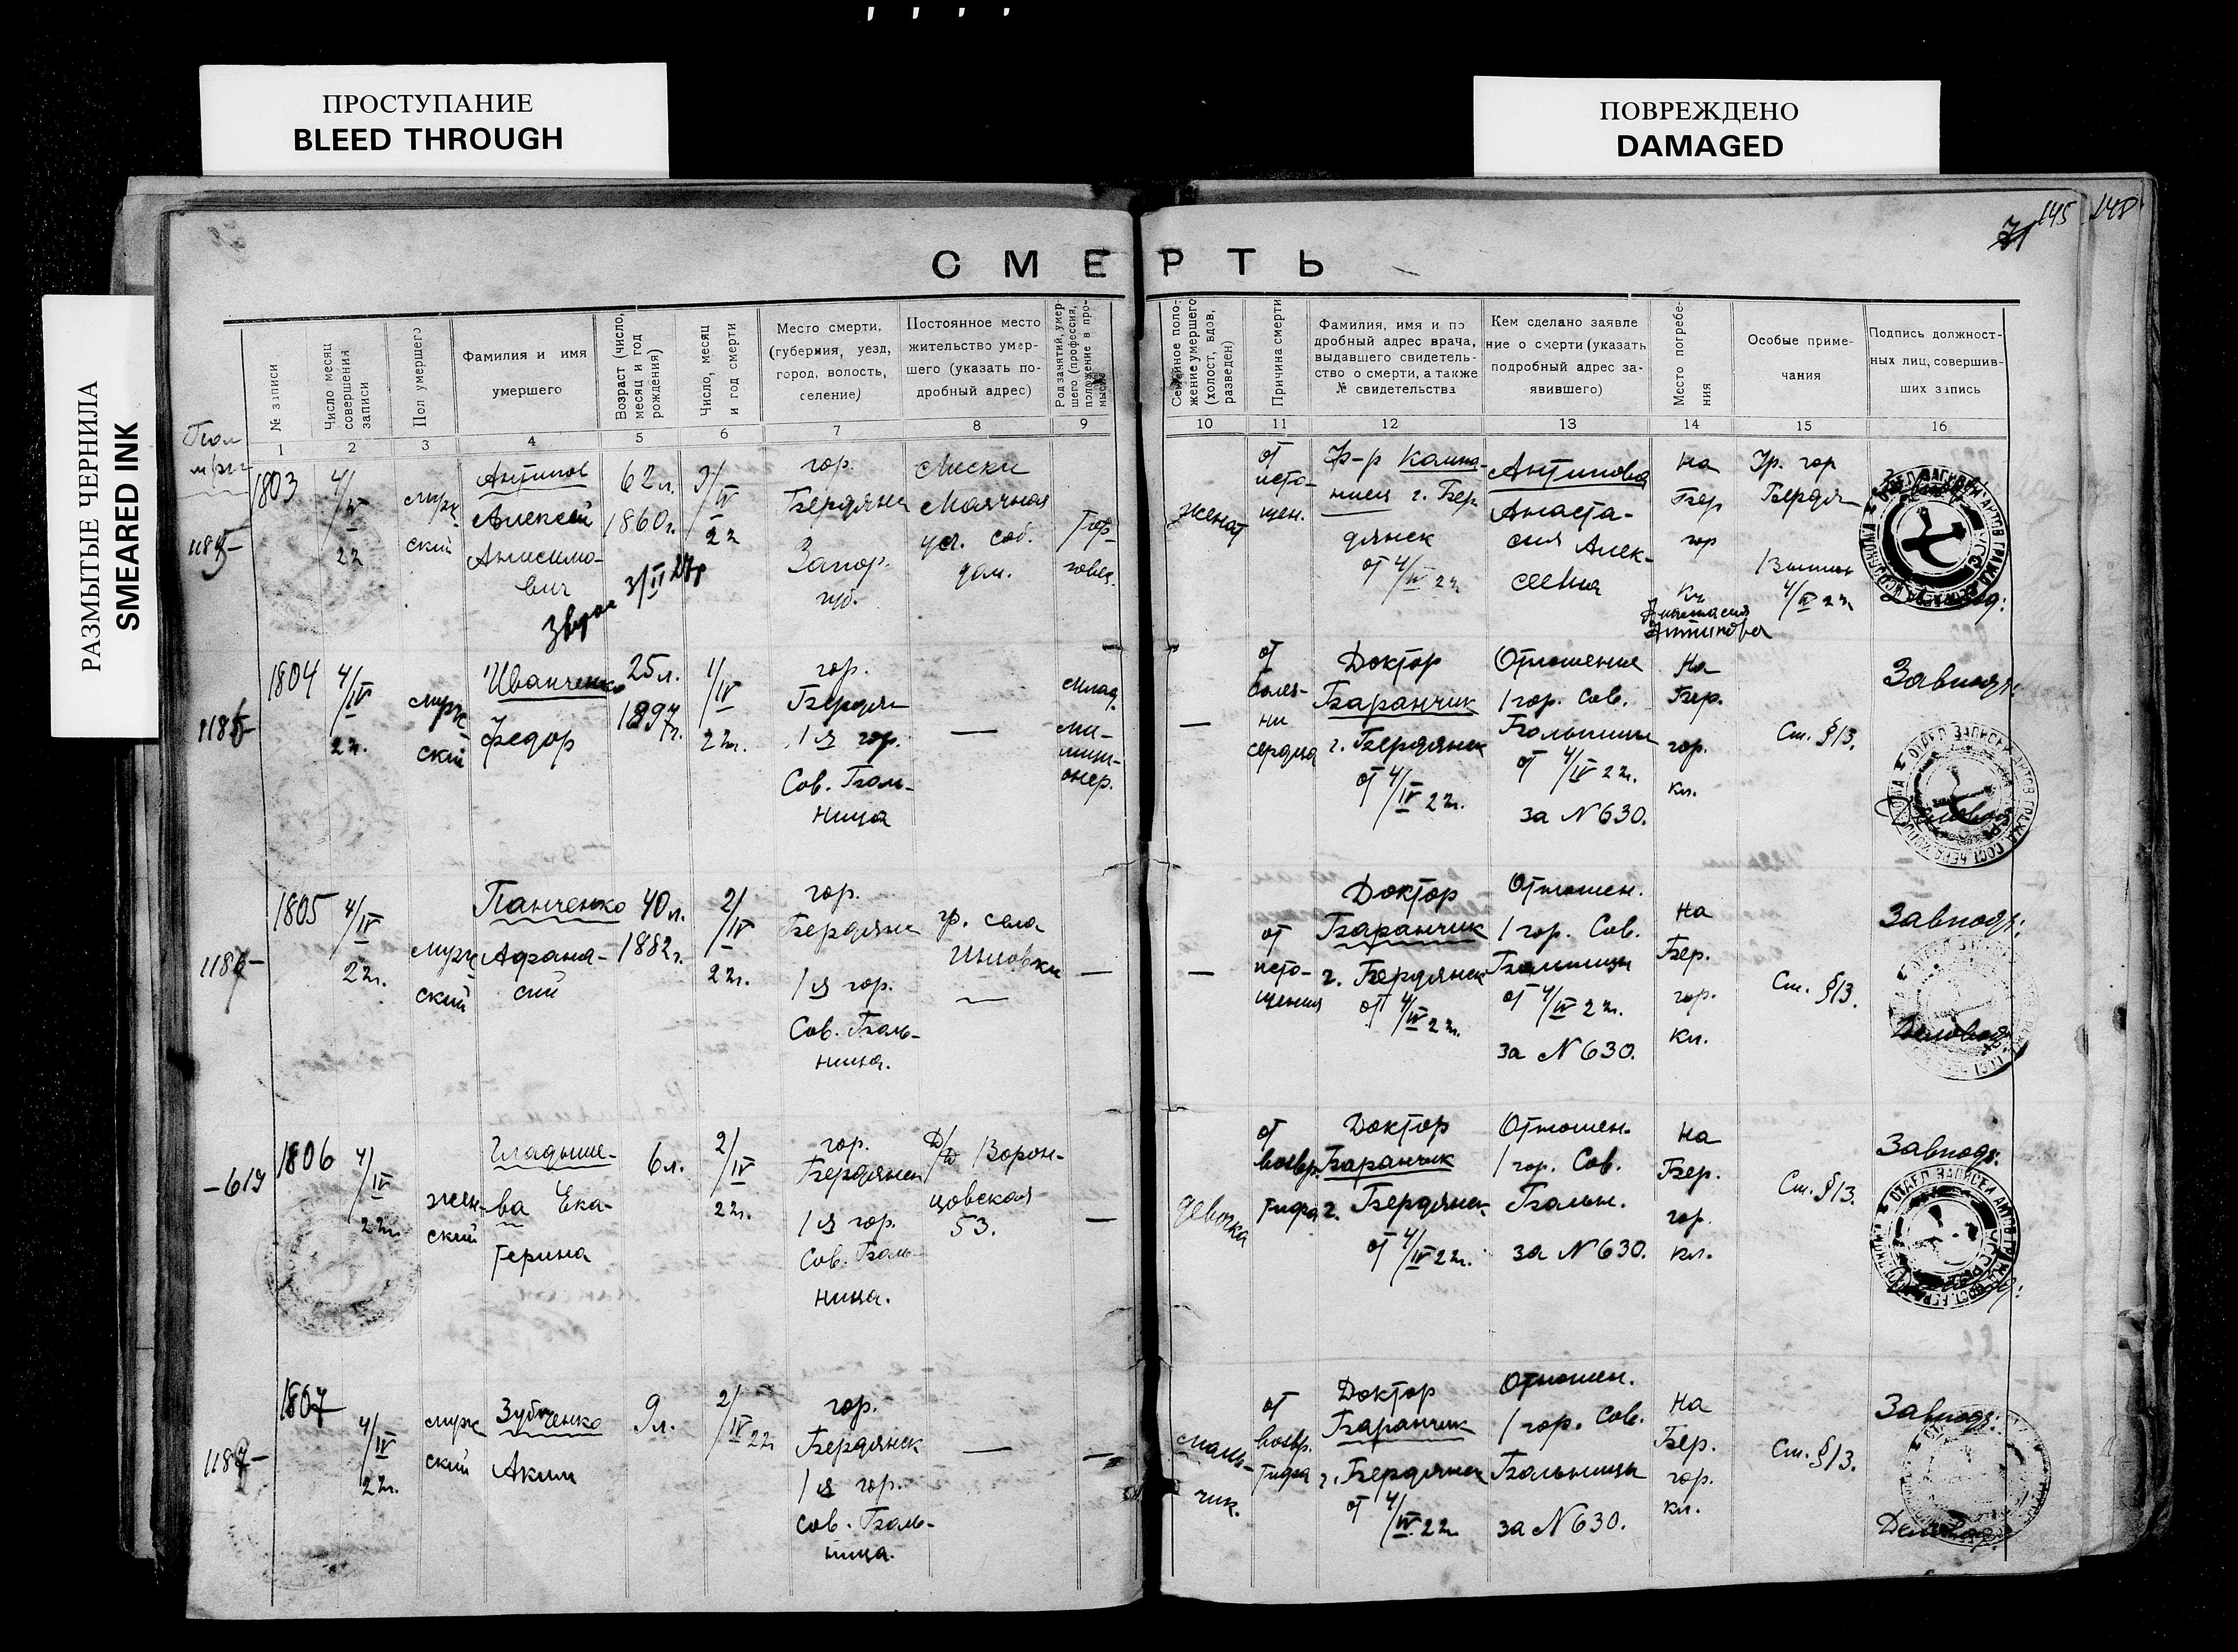 ПРОСТУПАНИЕ
BLEED THROUGH
ПОВРЕЖДЕНО
DAMAGED
РАЗМЫТЫЕ ЧЕРНИЛА
SMEARED INK
145
71
СМЕРТЬ
№ записи
Число месяц
совершения
записи
Пол умершего
Фамилия и имя
умершего
Возраст (число,
месяц и год
рождения)
Число, месяц
и год смерти
Место смерти,
(губерния, уезд,
город, волость,
селение)
Постоянное место
жительство умер-
шего (указать по-
дробный адрес)
Род занятий, умер-
шего (профессия,
положение в про-
мысле
Семейное поло-
жение умершего
(холост, вдов,
разведен)
Причина смерти
Фамилия, имя и по
дробный адрес врача,
выдавшего свидетель-
ство о смерти, а также
№ свидетельства
Кем сделано заявле
ние о смерти (указать
подробный адрес за-
явившего)
Место погребе-
ния
Особые приме-
чания
Подпись должност-
ных лиц, совершив-
ших запись
1 2 3 4 5 6 7 8 9 10 11 12 13 14 15 16
1803
4/IV
22
муж
ский
Антипов
Алексей
Анисимо-
вич
62 л.
1860 г.
3/IV
22
гор.
Бердянск
Запор.
губ.
Лиски
Маячная
ул. соб.
дом.
Тор-
говец.
женат
от
исто-
щен.
г. Бер
дянск
от 4/IV 22
Антипова
Анаста-
сия Алек-
сеевна
На
Бер
гор
кл.
Анастасия
Антипова
Гр. гор
Бердян
4/IV 22
1804
4/IV
22г.
муж
ский
Иванченко
Федор
25 л.
1897г.
1/IV
22г.
гор.
Бердян
1 я гор.
Сов. Боль-
ница
—
млад.
ми-
лици-
онер.
—
от
болез-
ни
сердца
Доктор
Баранчик
г. Бердянск
от 4/IV 22г.
Отношение
1 гор. Сов.
Больницы
от 4/IV 22г.
за N 630.
На
Бер.
гор.
кл.
См. §13.
Завподз:
1805
4/IV
22г.
муж
ский
Панченко
Афана-
сий
40 л.
1882г.
2/IV
22г.
гор.
Бердянск
1 я гор.
Сов. Боль-
ница.
гр. села
—
—
от
исто-
щения
Доктор
Баранчик
г. Бердянск
от 4/IV 22г.
Отношен.
1 гор. Сов.
Больницы
от 4/IV 22г.
за N 630.
На
Бер.
гор.
кл.
См. §13.
Завподз:
Деловод
-619
1806
4/IV
22г.
жен-
ский
Гладыше-
ва Ека-
терина
6л.
2/IV
22г.
гор.
Бердянск
1 я гор.
Сов. Боль-
ница.
Д/д Ворон-
цовская
53.
—
девочка
от
возвр.
тифа
Доктор
Баранчик
г. Бердянск
от 4/IV 22г.
Отношен.
1 гор. Сов.
Больн.
за N 630.
На
Бер.
гор.
кл.
См. §13.
Завподз:
1807
4/IV
22г.
муж
ский
Зубченко
Аким
9л.
2/IV 22
гор.
Бердянск
1 я гор.
Сов. Боль-
ница.
—
—
маль-
чик.
от
возвр.
тифа
Доктор
Баранчик
г. Бердянск
от 4/IV 22
Отношен.
1 гор. Сов.
Больницы
за N 630.
На
Бер.
гор.
кл.
См. §13.
Завподз:
Деловод